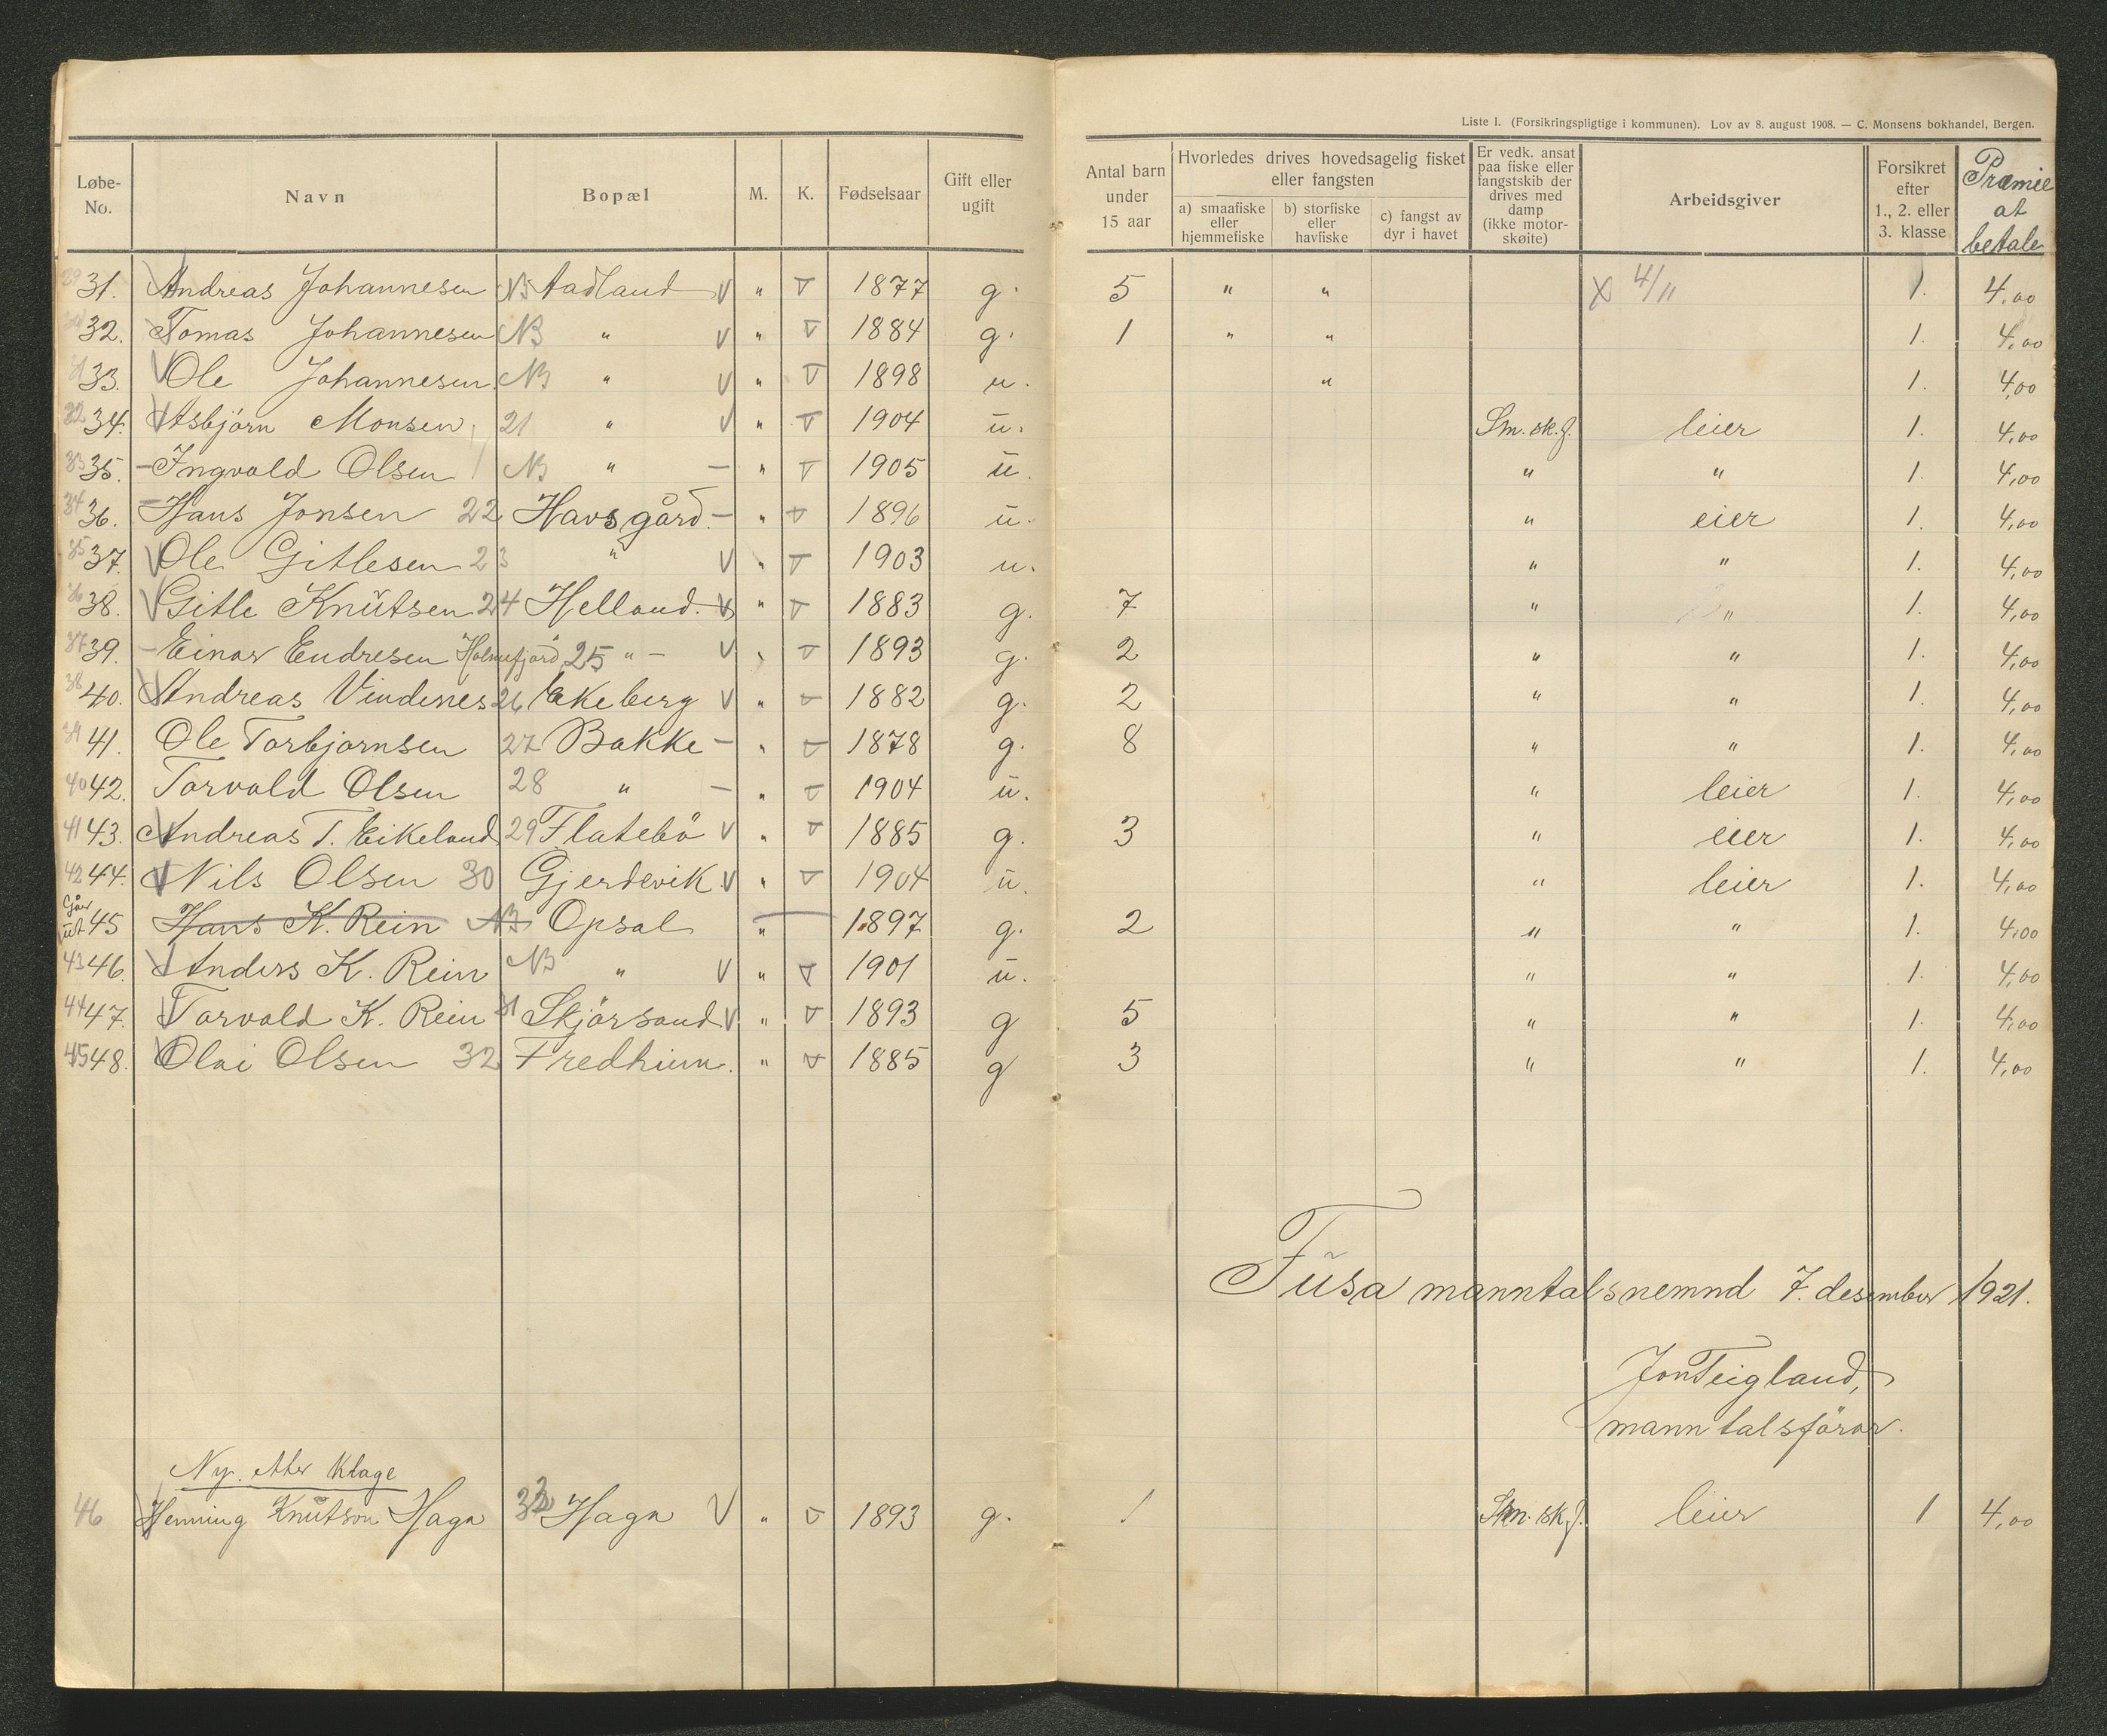 Liste I. (Forsikringspligtige i kommunen). Lov av 8. august 1908. — C. Monsens bokhandel, Bergen.
Løbe-No. Navn Bopæl M. K. Fødselsaar Gift eller ugift Antal barn under 15 aar Hvorledes drives hovedsagelig fisket eller fangsten a) smaafiske eller hjemmefiske b) storfiske eller havfiske c) fangst av dyr i havet Er vedk. ansat paa fiske eller fangstskib der drives med damp (ikke motor-skøite) Arbeidsgiver Forsikret efter 1., 2. eller 3. klasse Præmie at betale
29 31. Andreas Johannesen NB Aadland V " V 1877 g. 5 " " X 4/11 1. 4,00
30 32. Tomas Johannesen NB " V " V 1884 g. 1 " " 1. 4,00
31 33. V Ole Johannesen NB " V " V 1898 u. " 1. 4,00
32 34. V Asbjörn Monsen 21 " V " V 1904 ü. Sm. sk. f. leier 1. 4,00
33 35. - Ingvald Olsen NB " - " V 1905 ü. " " 1. 4,00
34 36. - Hans Jonsen 22 Havsgård. - " V 1896 ü. " eier 1. 4,00
35 37. V Ole Gitlesen 23 " V " V 1903 u. " " 1. 4,00
36 38. V Gitle Knütsen 24 Helland. V " V 1883 g. 7 " " 1. 4,00
37 39. - Einar Endresen Holmefjord 25 " - V " V 1893 g. 2 " " 1. 4,00
38 40. V Andreas Vindenes 26 Ekeberg V " V 1882 g. 2 " " 1. 4,00
39 41. Ole Torbjørnsen 27 Bakke - " V 1878 g. 8 " " 1. 4,00
40 42. Torvald Olsen 28 " - " V 1904 ü. " leier 1. 4,00
41 43. Andreas T. Eikeland 29 Flatebö V " V 1885 g. 3 " eier 1. 4,00
42 44. V Nils Olsen 30 Gjerdevik V " V 1904 ü. " leier 1. 4,00
Går üt 45 Hans K. Rein NB Opsal " 1897 g. 2 " " 1. 4,00
43 46. V Anders K. Rein NB " V " V 1901 ü. " " 1. 4,00
44 47. V Torvald K. Rein 31 Skjørsand V " V 1893 g 5 " " 1. 4,00
45 48. V Olai Olsen 32 Fredheim. " V 1885 g 3 " " 1. 4,00
Füsa manntalsnemnd 7. desember 1921.
Jon Teigland,
manntalsförar.
Ny. etter klage
46 Henning Knütson Haga 33 Haga V " V 1893 g. 1 Sm. sk. f. leier 1 4,00